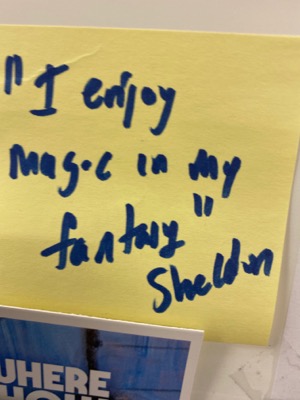 "I enjoy
magic in my
fantasy"
Sheldon
WHERE